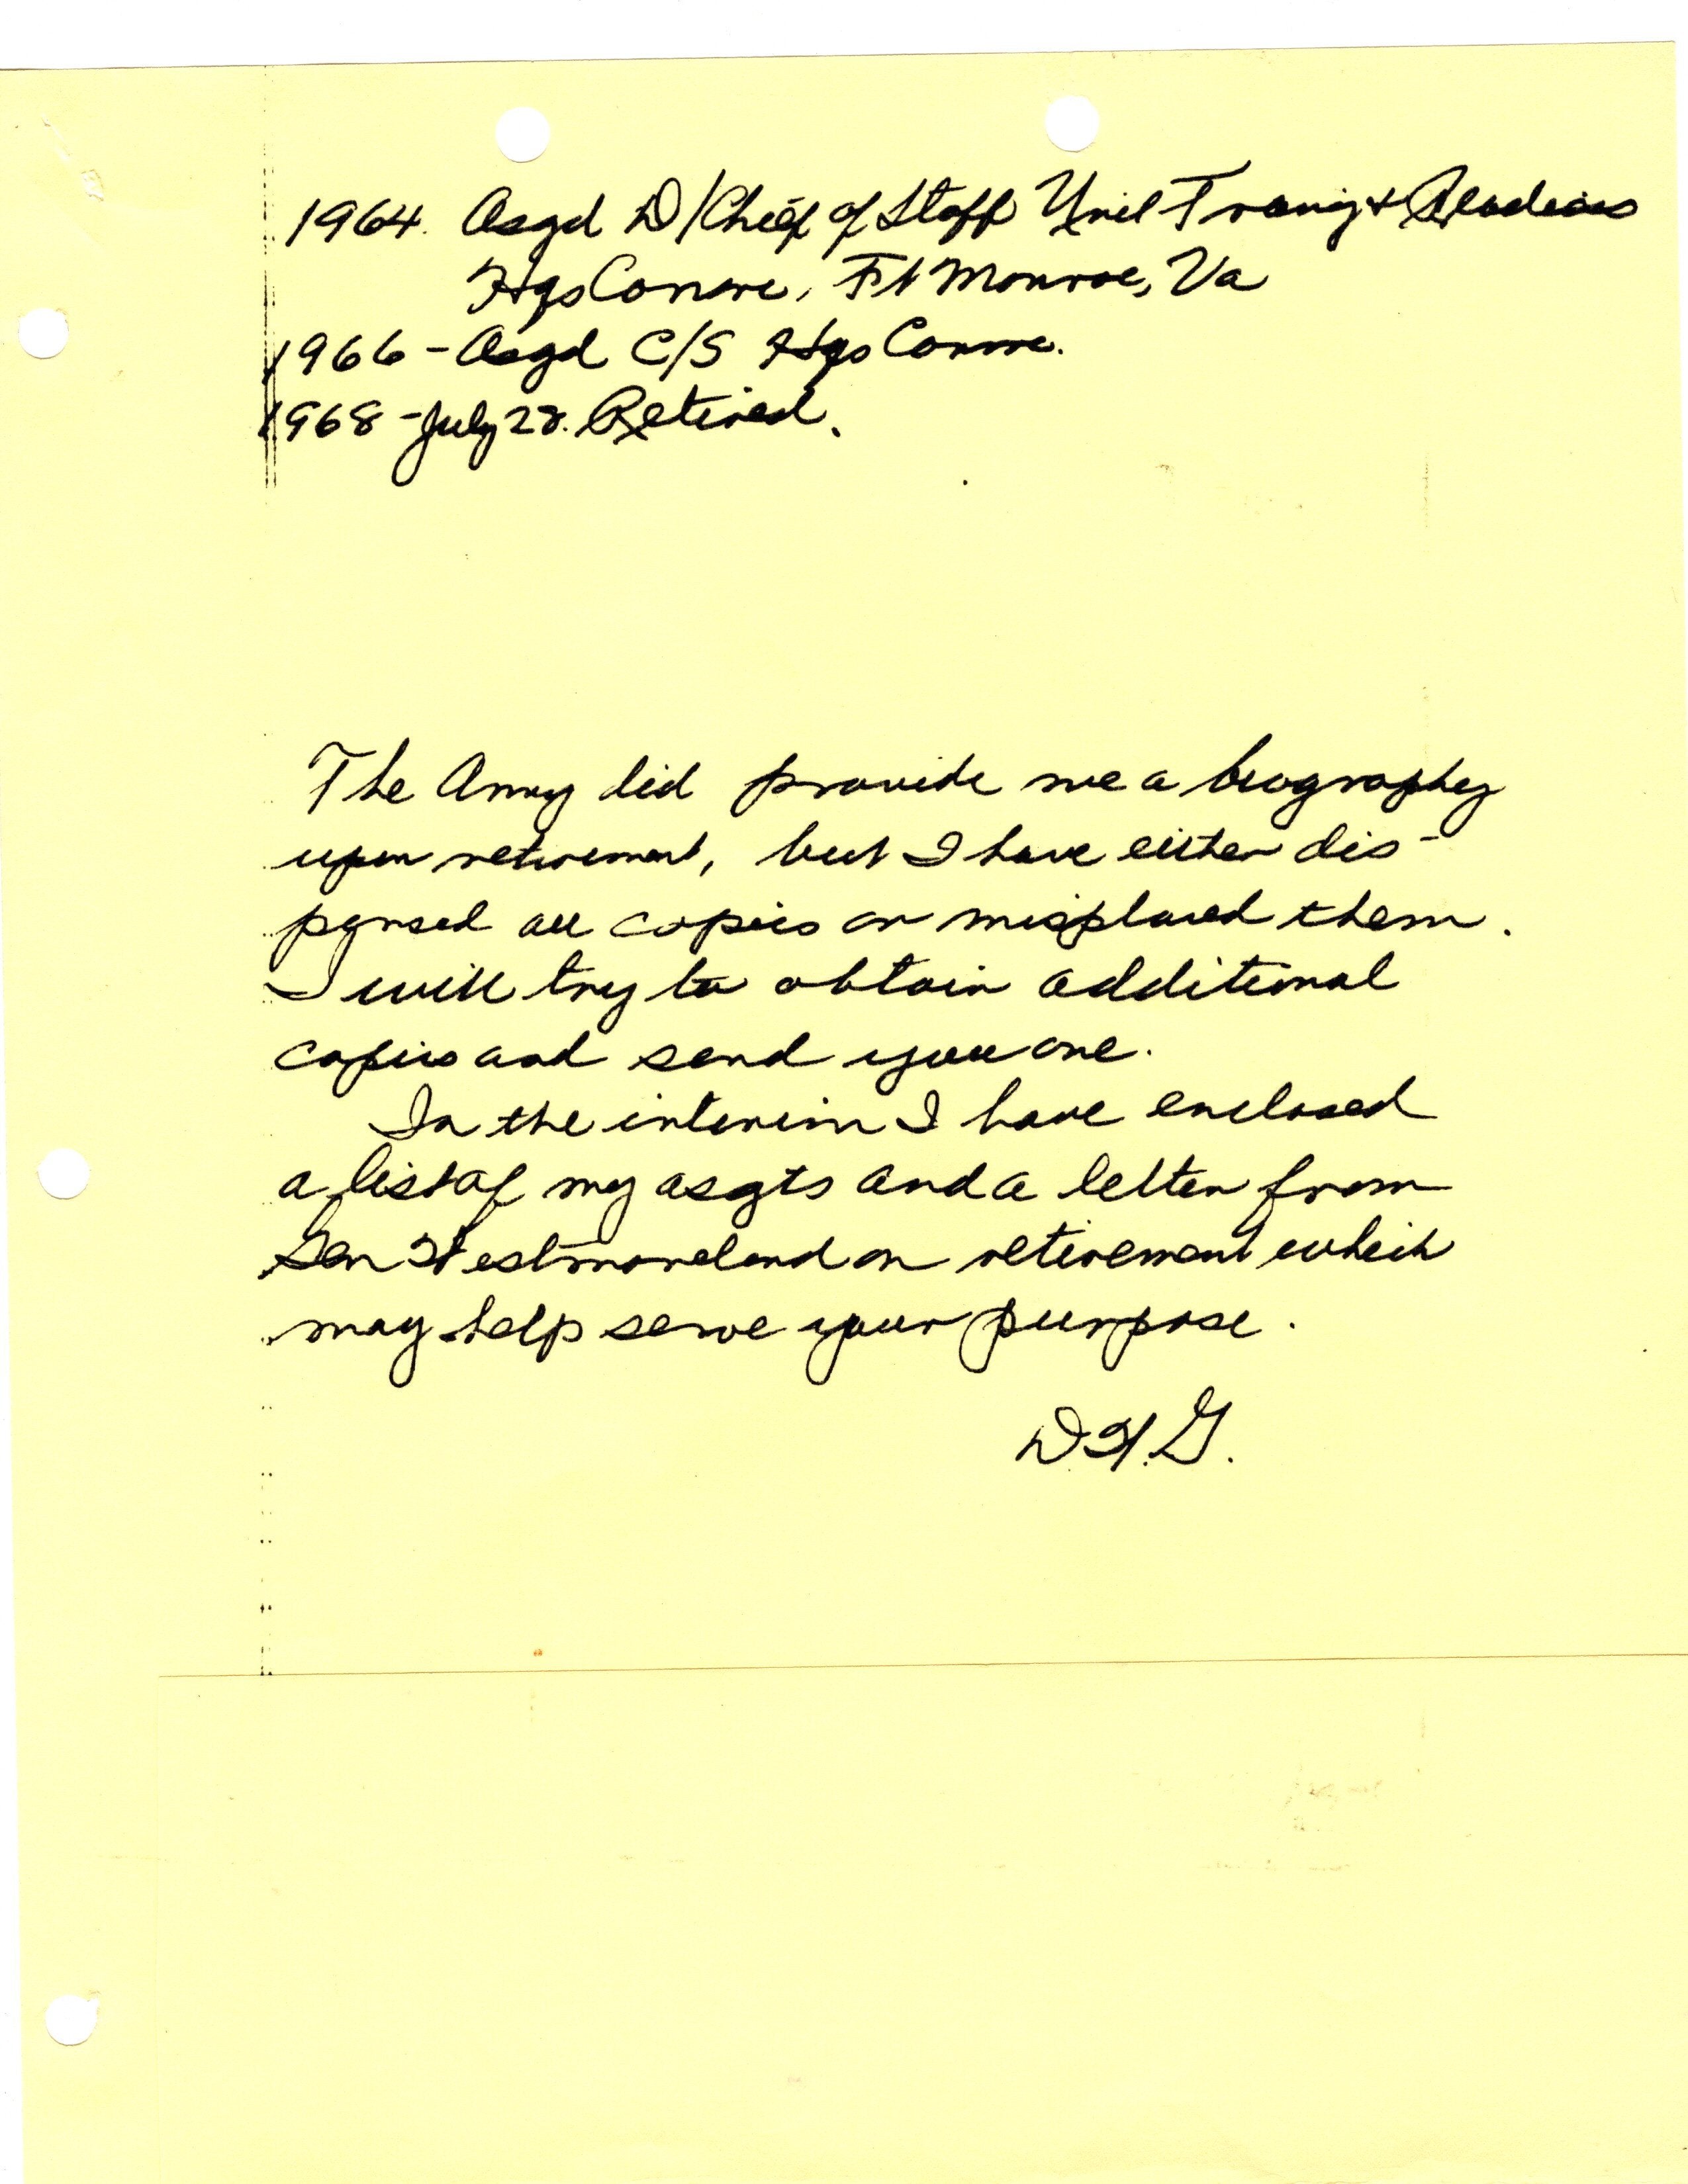 1964. Asgd D/Chief of Staff Unit Traing & Readiness
Hqs Conarc, Ft Monroe, Va
1966 - Asgd C/S Hqs Conarc.
1968 - July 28. Retired.
The Army did provide me a biography
upon retirement, but I have either dis-
persed all copies or misplaced them.
I will try to obtain additional
copies and send you one.
In the interim I have enclosed
a list of my asgts and a letter from
Gen Westmoreland on retirement which
may help serve your purpose.
D.H.G.